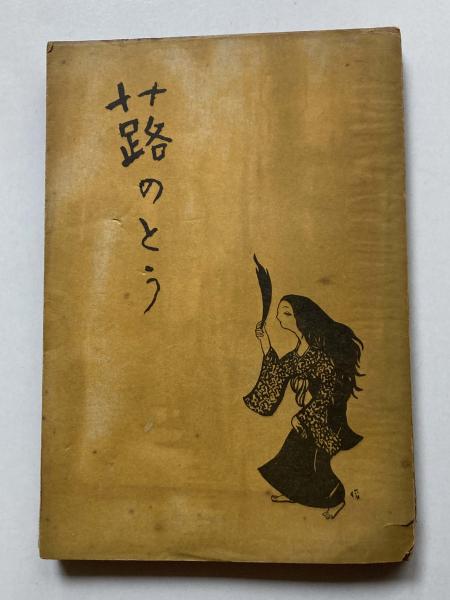 蕗のとう